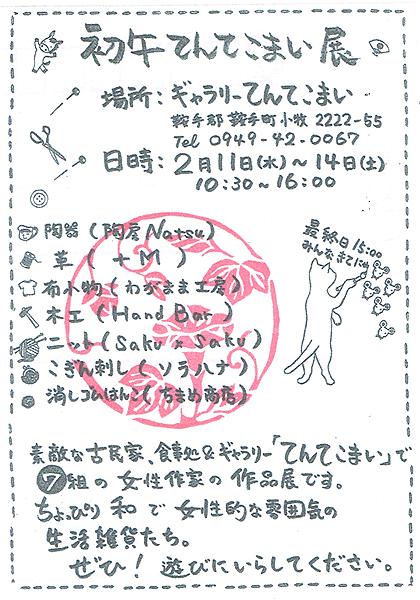 初午てんてこまい展
場所:ギャラリーてんてこまい
鞍手郡鞍手町小牧2222-55
Tel 0949-42-0067
日時:2月11日(水)~14日(土)
10:30~16:00
最終日15:00
陶器(陶房Natsu)
革(+M)
布小物(わがまま工房)
木工(Hand Bar)
ニット(Saku×Saku)
こぎん刺し(ソラハナ)
消しゴムはんこ(ちまめ商店)
素敵な古民家、食事処&ギャラリー「てんてこまい」で
7組の女性作家の作品展です。
ちょっぴり和で女性的な雰囲気の
生活雑貨たち。
ぜひ!遊びにいらしてください。